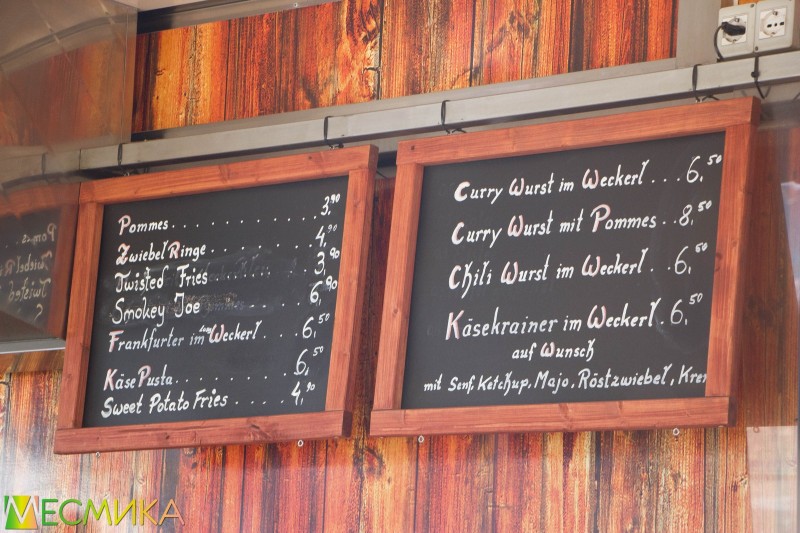 Pommes . . . . . . . . . . . . . 3,90
Zwiebel Ringe . . . . . . . . . 4,90
Twisted Fries . . . 3,90
Smokey Joe . . . 6,90
Frankfurter im Weckerl . . . . 6,50
Käse Pusta . . . . . . . . . . . 6,50
Sweet Potato Fries . . . . . . 4,90
Curry Wurst im Weckerl . . . 6,50
Curry Wurst mit Pommes . . 8,50
Chili Wurst im Weckerl . . 6,50
Käsekrainer im Weckerl . 6,50
auf Wunsch
mit Senf, Ketchup, Majo, Röstzwiebel, Kren
МЕСМИКА